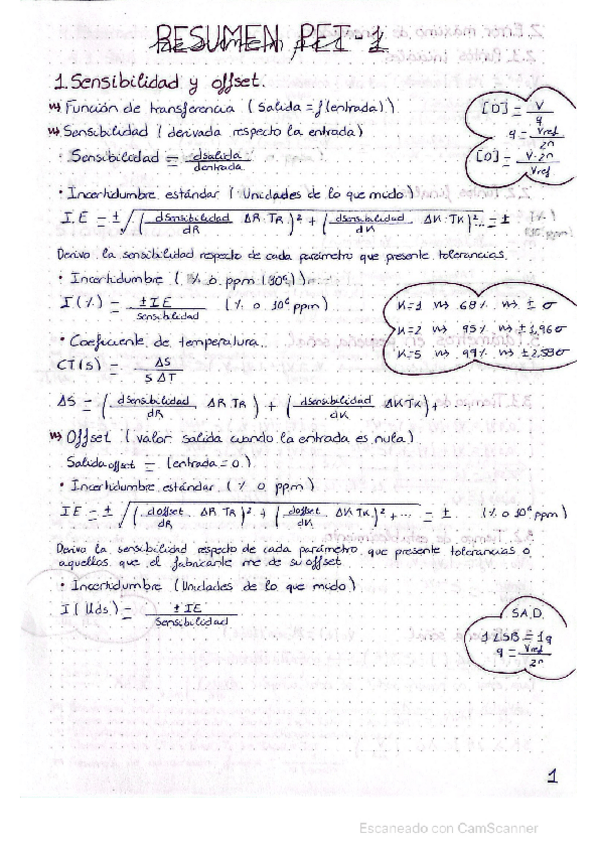 RESUMEN PET-1
1. Sensibilidad y offset.
Función de transferencia (Salida = f(entrada))
[D] = V/q
Sensibilidad (derivada respecto la entrada)
q = Vref/2n
· Sensibilidad = dsalida/dentrada
[D] = V·2n/Vref
· Incertidumbre estándar (Unidades de lo que mido)
I.E = ± √((dsensibilidad/dR ΔR·TR)² + (dsensibilidad/dK ΔK·TK)²... = ±
Derivo la sensibilidad respecto de cada parámetro que presente tolerancias.
· Incertidumbre (% o ppm (10⁶))
I (%) = ±IE/sensibilidad (% o 10⁶ ppm)
K=1 68% ± σ
K=2 95% ±1,96σ
K=5 99% ±2,58σ
· Coeficiente de temperatura.
CT(S) = ΔS/SΔT
ΔS = (dsensibilidad/dR ΔR TR) + (dsensibilidad/dK ΔK TK)+
Offset (valor salida cuando la entrada es nula)
Salida offset = (entrada = 0)
· Incertidumbre estándar (% o ppm)
IE = ± √((doffset/dR ΔR TR)² + (doffset/dK ΔK TK)² + ... = ± (% o 10⁶ ppm)
Derivo la sensibilidad respecto de cada parámetro que presente tolerancias o
aquellos que el fabricante me de su offset
· Incertidumbre (Unidades de lo que mido)
I (Uds) = ±IE/sensibilidad
S.A.D.
1LSB = 1q
q = Vref/2n
1
Escaneado con CamScanner